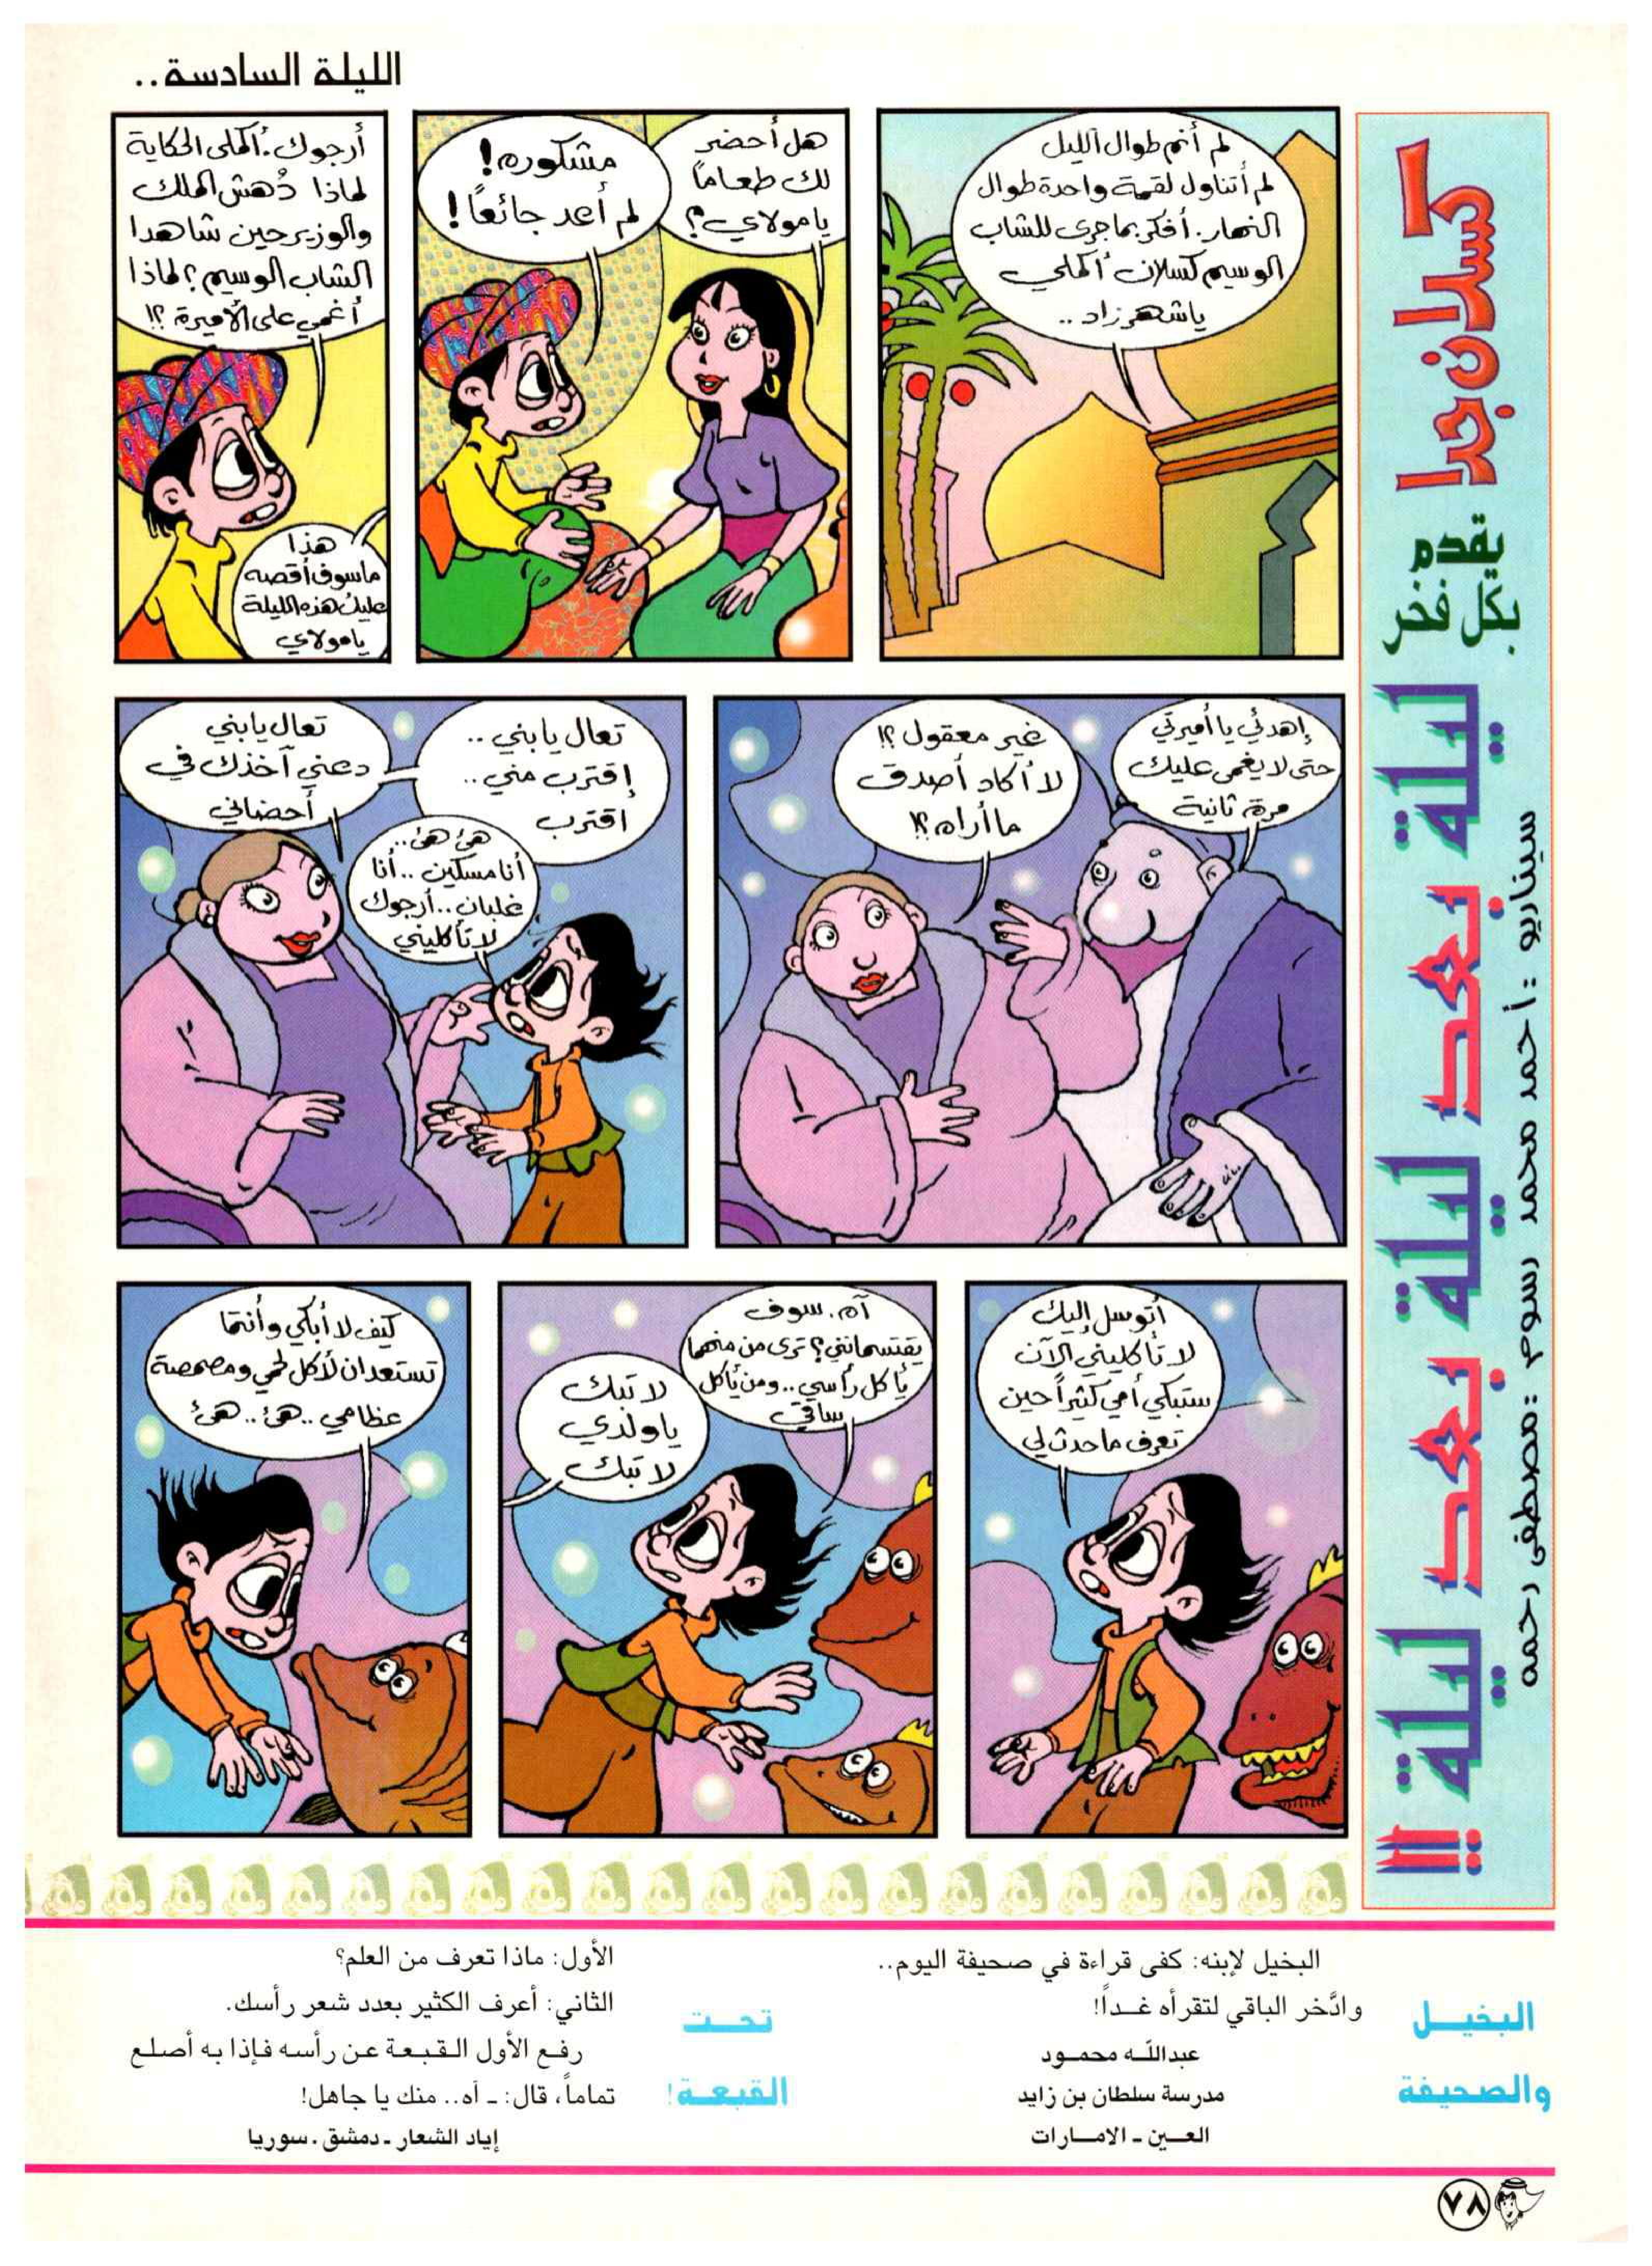 الليلة السادسة..
كسلان جدا
يقدم
بكل فخر
ليلة بعد ليلة بعد ليلة !!
سيناريو : أحمد محمد رسوم : مصطفى رحمه
لم أنم طوال الليل
لم أتناول لقمة واحدة طوال
النهار. أفكر بما جرى للشاب
الوسيم كسلان أكملي
يا شهرزاد ..
هل أحضر
لك طعاماً
يا مولاي؟
مشكوره!
لم أعد جائعاً!
أرجوك. أكملى الحكاية
لماذا دُهش الملك
والوزير حين شاهدا
الشاب الوسيم؟ لماذا
أغمي على الأميرة ؟!
هذا
ما سوف أقصه
عليك هذه الليلة
يا مولاي
إهدئي يا أميرتي
حتى لا يغمى عليك
مرة ثانية
غير معقول ؟!
لا أكاد أصدق
ما أراه ؟!
تعال يا بني ..
إقترب مني ..
اقترب
تعال يا بني
دعني آخذك في
أحضاني
هئ هئ..
أنا مسكين .. أنا
غلبان .. أرجوك
لا تأكليني
أتوسل إليك
لا تأكليني الآن
ستبكي أمي كثيراً حين
تعرف ما حدث لي
آه . سوف
يقتسمانني؟ ترى من منهما
يأكل رأسي .. ومن يأكل
ساقي
لا تبك
يا ولدي
لا تبك
كيف لا أبكي وأنتما
تستعدان لأكل لحمي ومصمصة
عظامي .. هئ .. هئ
البخيــل
والصحيفة
البخيل لإبنه: كفى قراءة في صحيفة اليوم..
وادَّخر الباقي لتقرأه غــداً!
عبدالله محمـود
مدرسة سلطان بن زايد
العــين ـ الامــارات
تحــت
القبعــة!
الأول: ماذا تعرف من العلم؟
الثاني: أعرف الكثير بعدد شعر رأسك.
رفـع الأول القـبـعـة عـن رأسـه فـإذا بـه أصـلـع
تماماً، قال: ـ آه.. منك يا جاهل!
إياد الشعار ـ دمشق . سوريا
٧٨